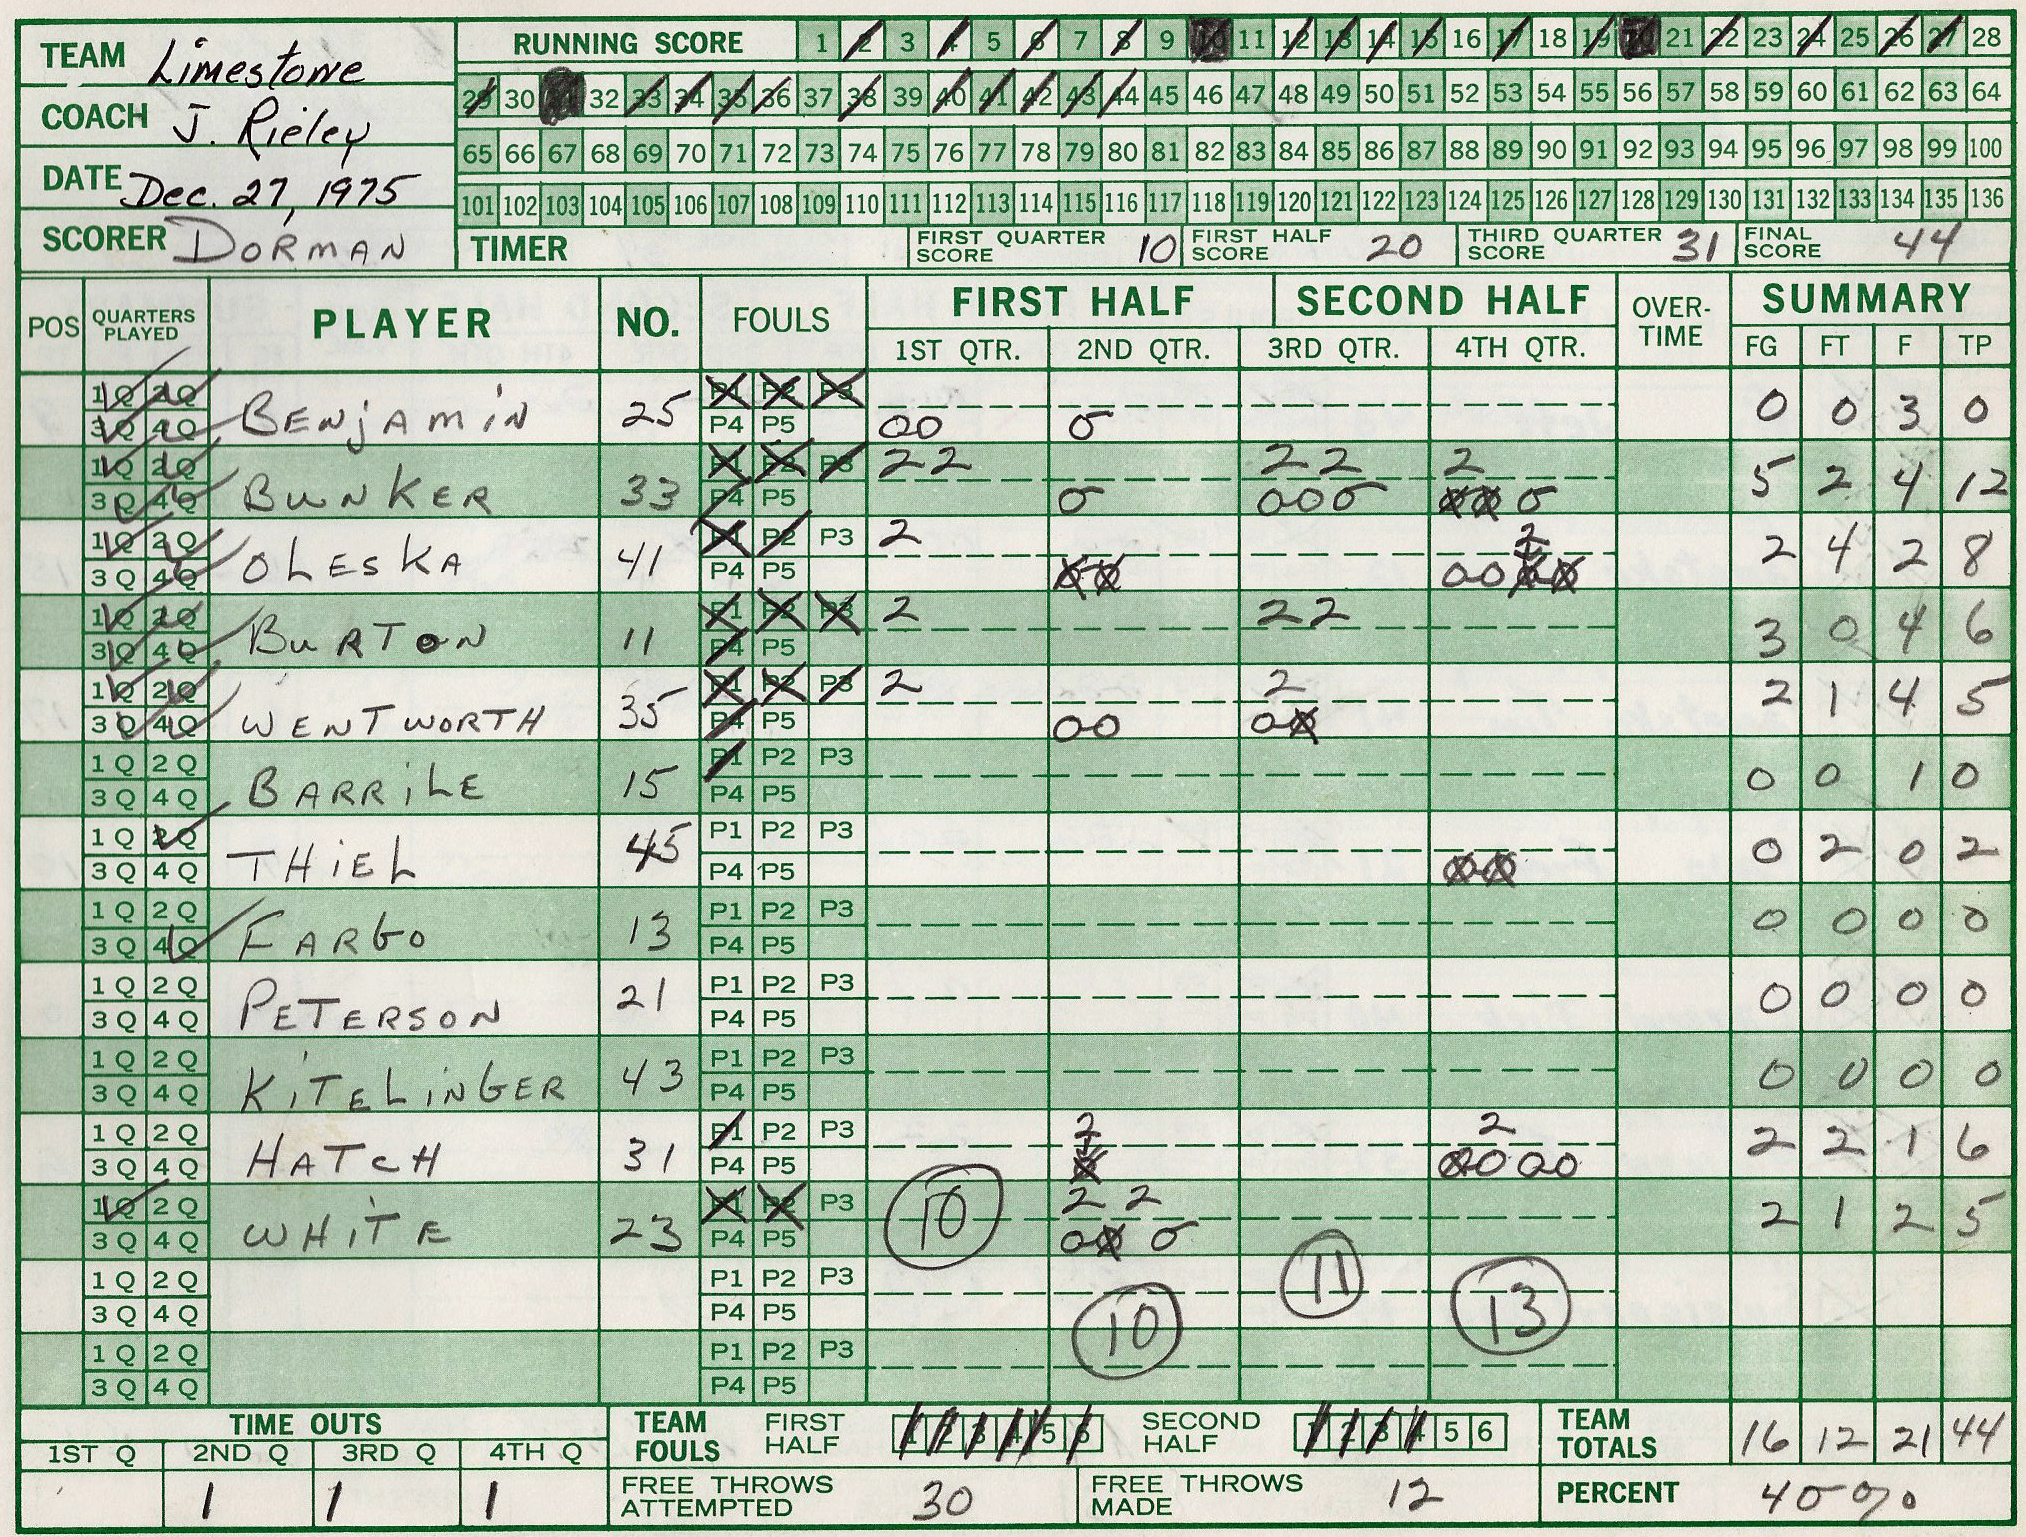 TEAM Limestone
COACH J. Rieley
DATE Dec. 27, 1975
SCORER DORMAN
RUNNING SCORE 1 2 3 4 5 6 7 8 9 10 11 12 13 14 15 16 17 18 19 20 21 22 23 24 25 26 27 28
29 30 31 32 33 34 35 36 37 38 39 40 41 42 43 44 45 46 47 48 49 50 51 52 53 54 55 56 57 58 59 60 61 62 63 64
65 66 67 68 69 70 71 72 73 74 75 76 77 78 79 80 81 82 83 84 85 86 87 88 89 90 91 92 93 94 95 96 97 98 99 100
101 102 103 104 105 106 107 108 109 110 111 112 113 114 115 116 117 118 119 120 121 122 123 124 125 126 127 128 129 130 131 132 133 134 135 136
TIMER FIRST QUARTER SCORE 10 FIRST HALF SCORE 20 THIRD QUARTER SCORE 31 FINAL SCORE 44
POS QUARTERS PLAYED PLAYER NO. FOULS FIRST HALF SECOND HALF OVER-TIME SUMMARY
1ST QTR. 2ND QTR. 3RD QTR. 4TH QTR. FG FT F TP
1Q 2Q P1 P2 P3
3Q 4Q BENjAMiN 25 P4 P5 00 0 0 0 3 0
1Q 2Q P1 P2 P3 22 22 2
3Q 4Q BUNKER 33 P4 P5 0 000 000 5 2 4 12
1Q 2Q P1 P2 P3 2 2
3Q 4Q OLESKA 41 P4 P5 00 0000 2 4 2 8
1Q 2Q P1 P2 P3 2 22
3Q 4Q BuRTON 11 P4 P5 3 0 4 6
1Q 2Q P1 P2 P3 2 2
3Q 4Q WENTWORTH 35 P4 P5 00 00 2 1 4 5
1Q 2Q P1 P2 P3
3Q 4Q BARRiLE 15 P4 P5 0 0 1 0
1Q 2Q P1 P2 P3
3Q 4Q THiEL 45 P4 P5 00 0 2 0 2
1Q 2Q P1 P2 P3
3Q 4Q FARGO 13 P4 P5 0 0 0 0
1Q 2Q P1 P2 P3
3Q 4Q PETERSON 21 P4 P5 0 0 0 0
1Q 2Q P1 P2 P3
3Q 4Q KiTELiNGER 43 P4 P5 0 0 0 0
1Q 2Q P1 P2 P3 2 2
3Q 4Q HATCH 31 P4 P5 0 0000 2 2 1 6
1Q 2Q P1 P2 P3 10 2 2
3Q 4Q WHiTE 23 P4 P5 00 0 2 1 2 5
1Q 2Q P1 P2 P3 11
3Q 4Q P4 P5 10 13
1Q 2Q P1 P2 P3
3Q 4Q P4 P5
TIME OUTS TEAM FOULS FIRST HALF 1 2 3 4 5 6 SECOND HALF 1 2 3 4 5 6 TEAM TOTALS 16 12 21 44
1ST Q 2ND Q 3RD Q 4TH Q
1 1 1 FREE THROWS ATTEMPTED 30 FREE THROWS MADE 12 PERCENT 40%